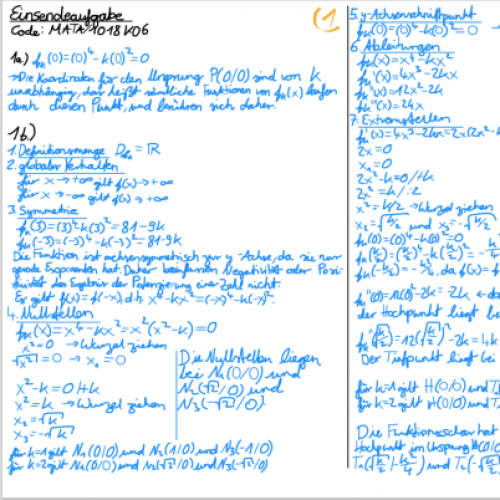 Einsendeaufgabe
Code: MATA 1018 K06
(1
1a.) fk(0)=(0)⁴-k(0)²=0
→Die Koordinaten für den Ursprung P(0/0) sind von k
unabhängig, das heißt sämtliche Funktionen von fk(x) laufen
durch diesen Punkt, und berühren sich daher.
1b.)
1. Definitionsmenge Dfk = ℝ
2. globaler Verhalten
für x→+∞ gilt f(x)→+∞
für x→-∞ gilt f(x)→+∞
3. Symmetrie
fk(3)=(3)⁴-k(3)²=81-9k
fk(-3)=(-3)⁴-k(-3)²=81-9k
Die Funktion ist achsensymmetrisch zur y-Achse, da sie nur
gerade Exponenten hat. Daher beeinflussen Negativität oder Posi-
tivität das Ergebnis der Potenzierung eine Zahl nicht.
Es gilt f(x)=f(-x), d.h. x⁴-kx²=(-x)⁴-k(-x)².
4. Nullstellen
fk(x)=x⁴-kx²=x²(x²-k)=0
x²=0 →Wurzel ziehen
√x²=0 → x₁=0
x²-k=0 /+k
x²=k → Wurzel ziehen
x₂=√k
x₃=-√k
Die Nullstellen liegen
bei N₁(0/0) und
N₂(√2/0) und
N₃(-√2/0)
für k=1 gilt N₁(0/0) und N₂(1/0) und N₃(-1/0)
für k=2 gilt N₁(0/0) und N₂(√2/0) und N₃(-√2/0)
5. y-Achsenschnittpunkt
fk(0)=(0)⁴-k(0)²=0 →
6. Ableitungen
fk(x)=x⁴-kx²
fk'(x)=4x³-2kx
fk''(x)=12x²-2k
fk'''(x)=24x
7. Extremstellen
fk'(x)=4x³-2kx=2x(2x²-k
2x=0
x₁=0
2x²-k=0/+k
2x²=k/:2
x²=k/2 →Wurzel ziehen
x₂=√k/2 und x₃=-√k/2
fk(0)=(0)⁴-k(0)²=0
der Hochpunkt liegt bei
Der Tiefpunkt liegt bei
für k=1 gilt H(0/0) und T₁
für k=2 gilt H(0/0) und T₁
Die Funktionsschar hat
Hochpunkt im Ursprung H(0/0